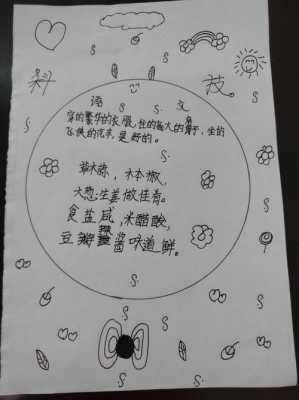 科 技
语 文
穿的繁华的衣服,住的高大的房子,坐的
飞快的汽车,是的。
木本椒,
大葱生姜做佳肴。
食盐咸,米醋酸,
豆瓣辣酱味道鲜。